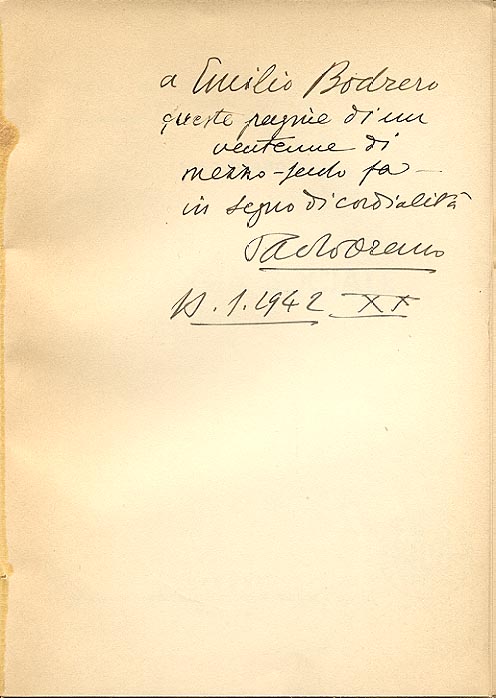 a Emilio Bodrero
queste pagine di un
ventenne di
mezzo-secolo fa -
in segno di cordialità
Paolo Orano
13.1.1942 XX